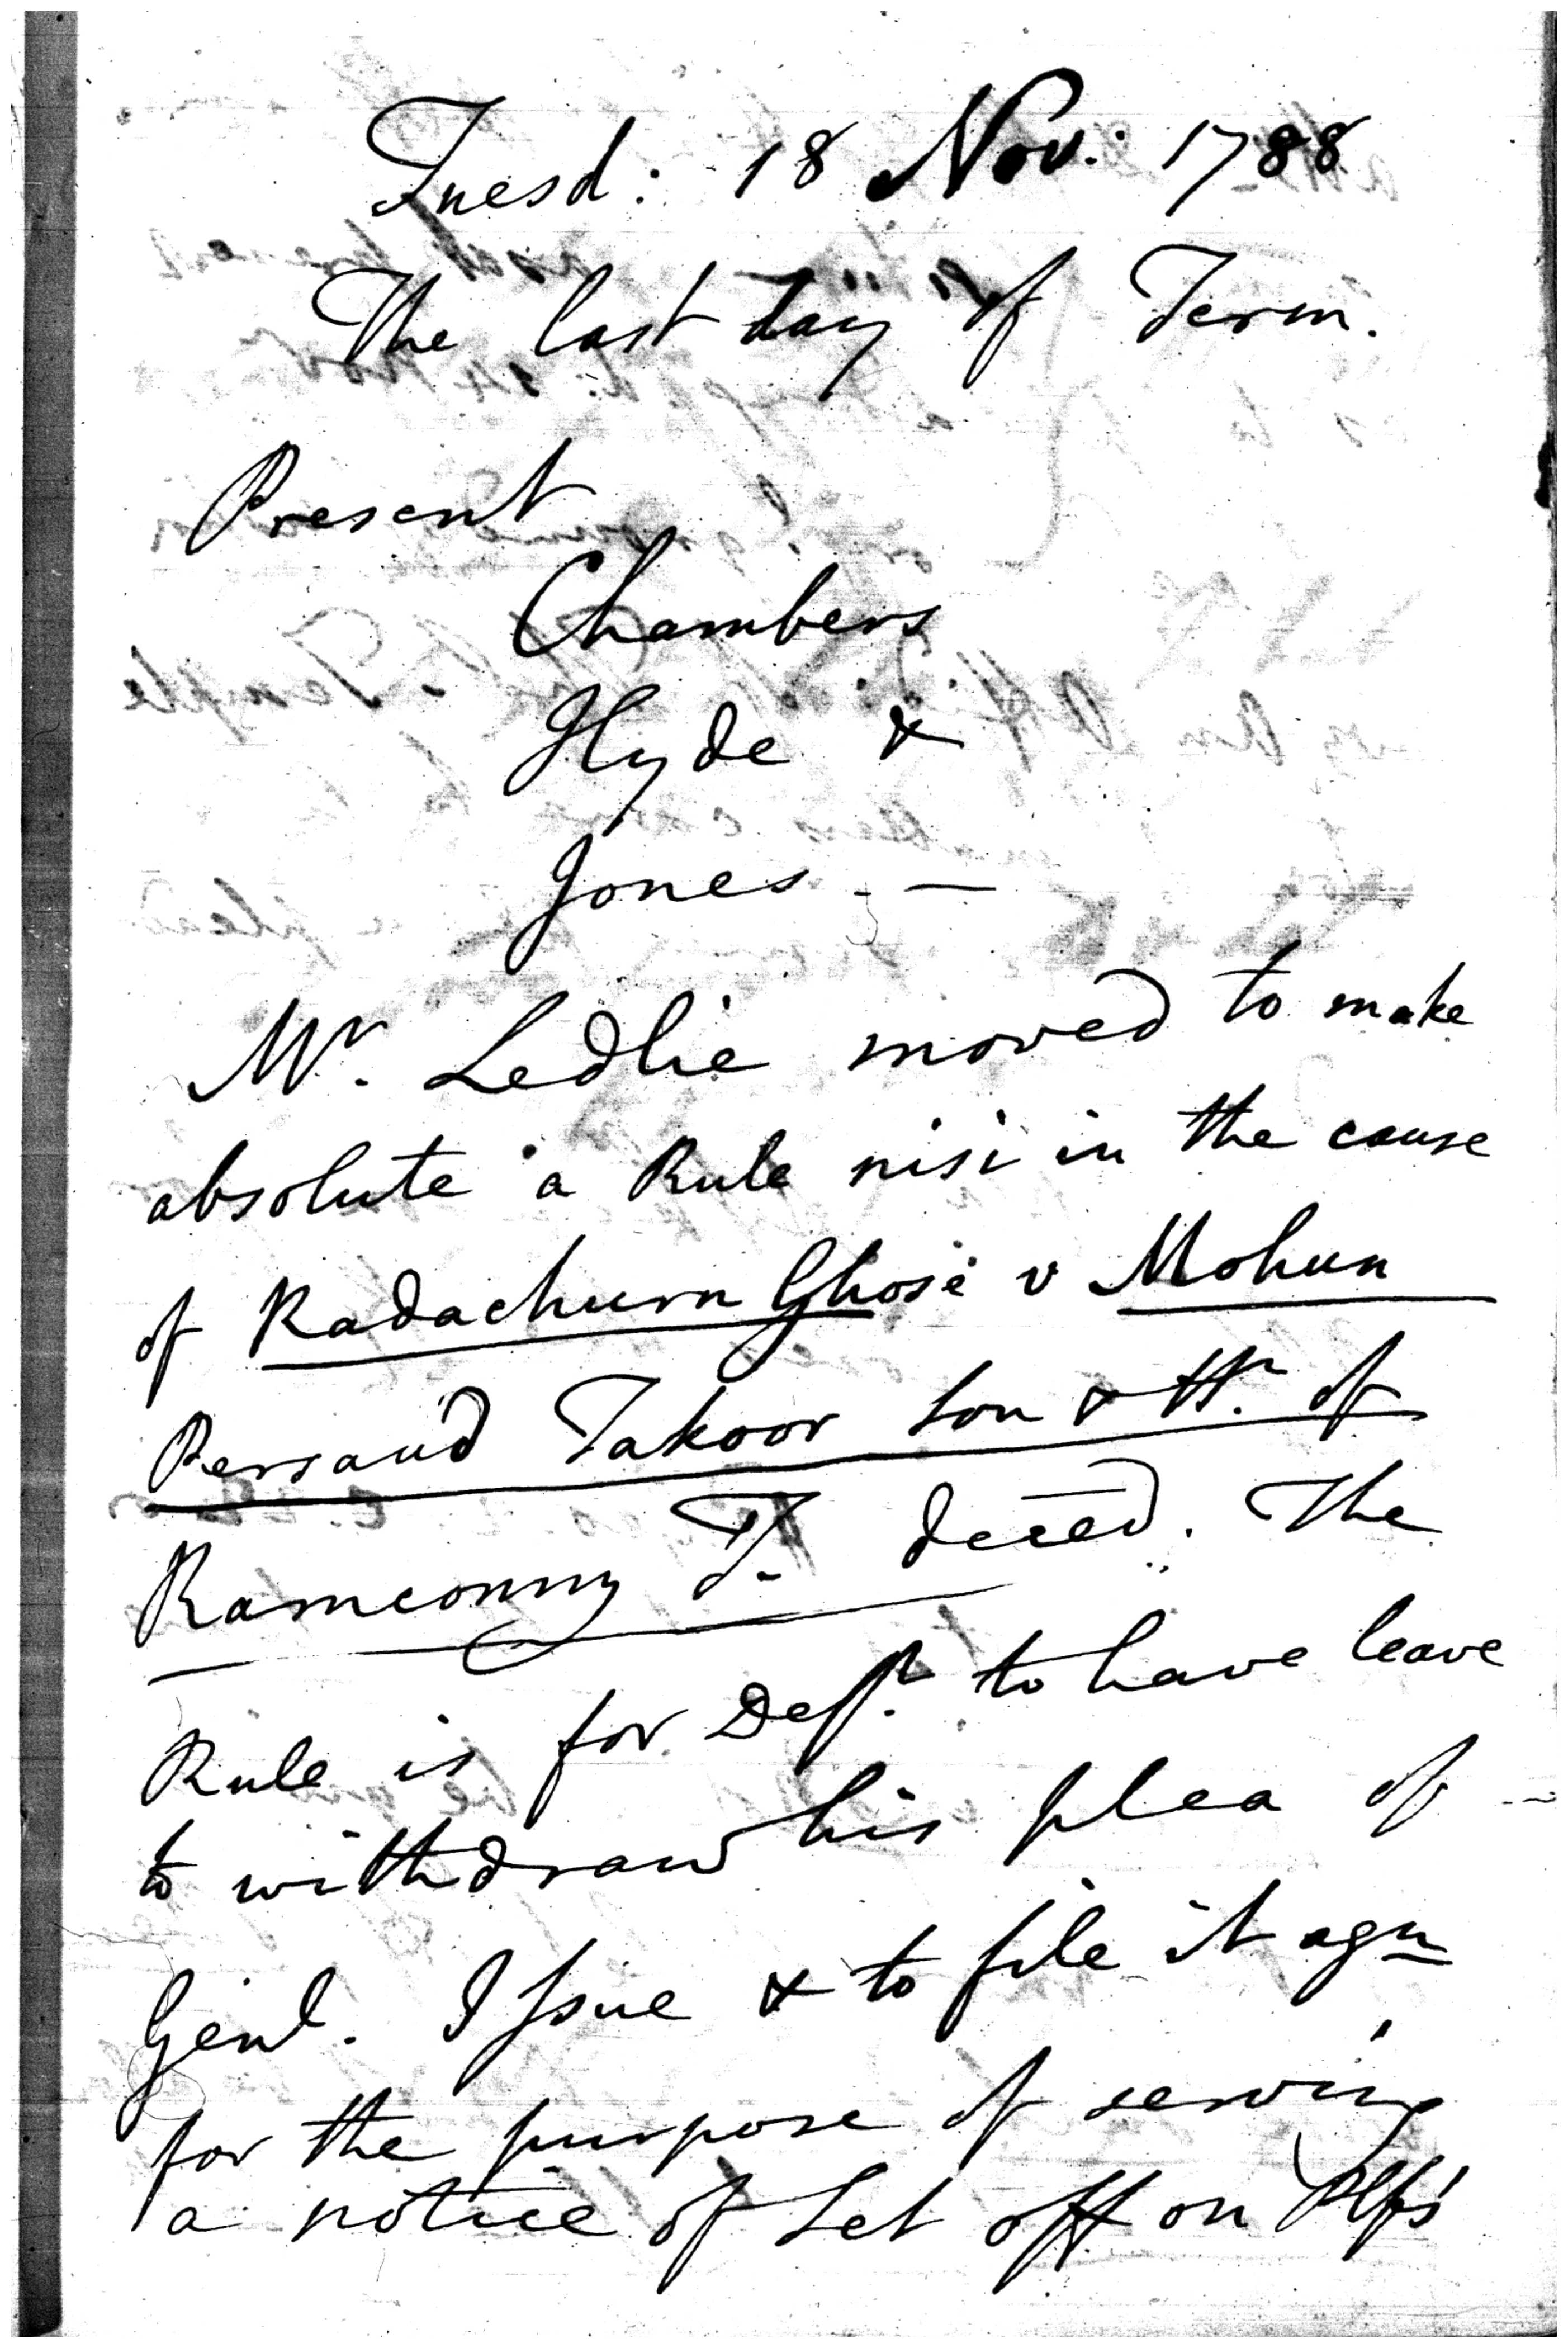 Tuesd: 18 Nov: 1788
The last day of Term.
Present
Chambers
Hyde &
Jones. —
Mr. Ledlie moved to make
absolute a Rule nisi in the cause
of Radachurn Ghose v Mohun
Persaud Takoor Son & Hr. of
Ramconny T. deced. The
Rule is for Deft. to have leave
to withdraw his plea of
Genl. Issue & to file it agn
for the purpose of serving
a notice of Set off on Plfs